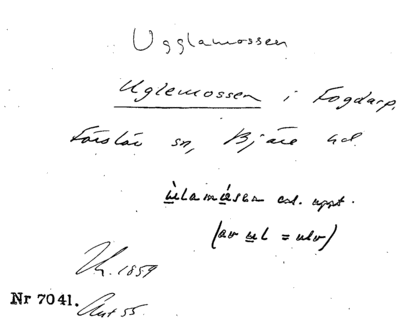 Ugglamossen
Uglemossen i Fogdarp,
Förslöv sn, Bjäre hd.
ùlamåsen enl. uppt.
(av ul = ulv)
1859
Nr 7041.